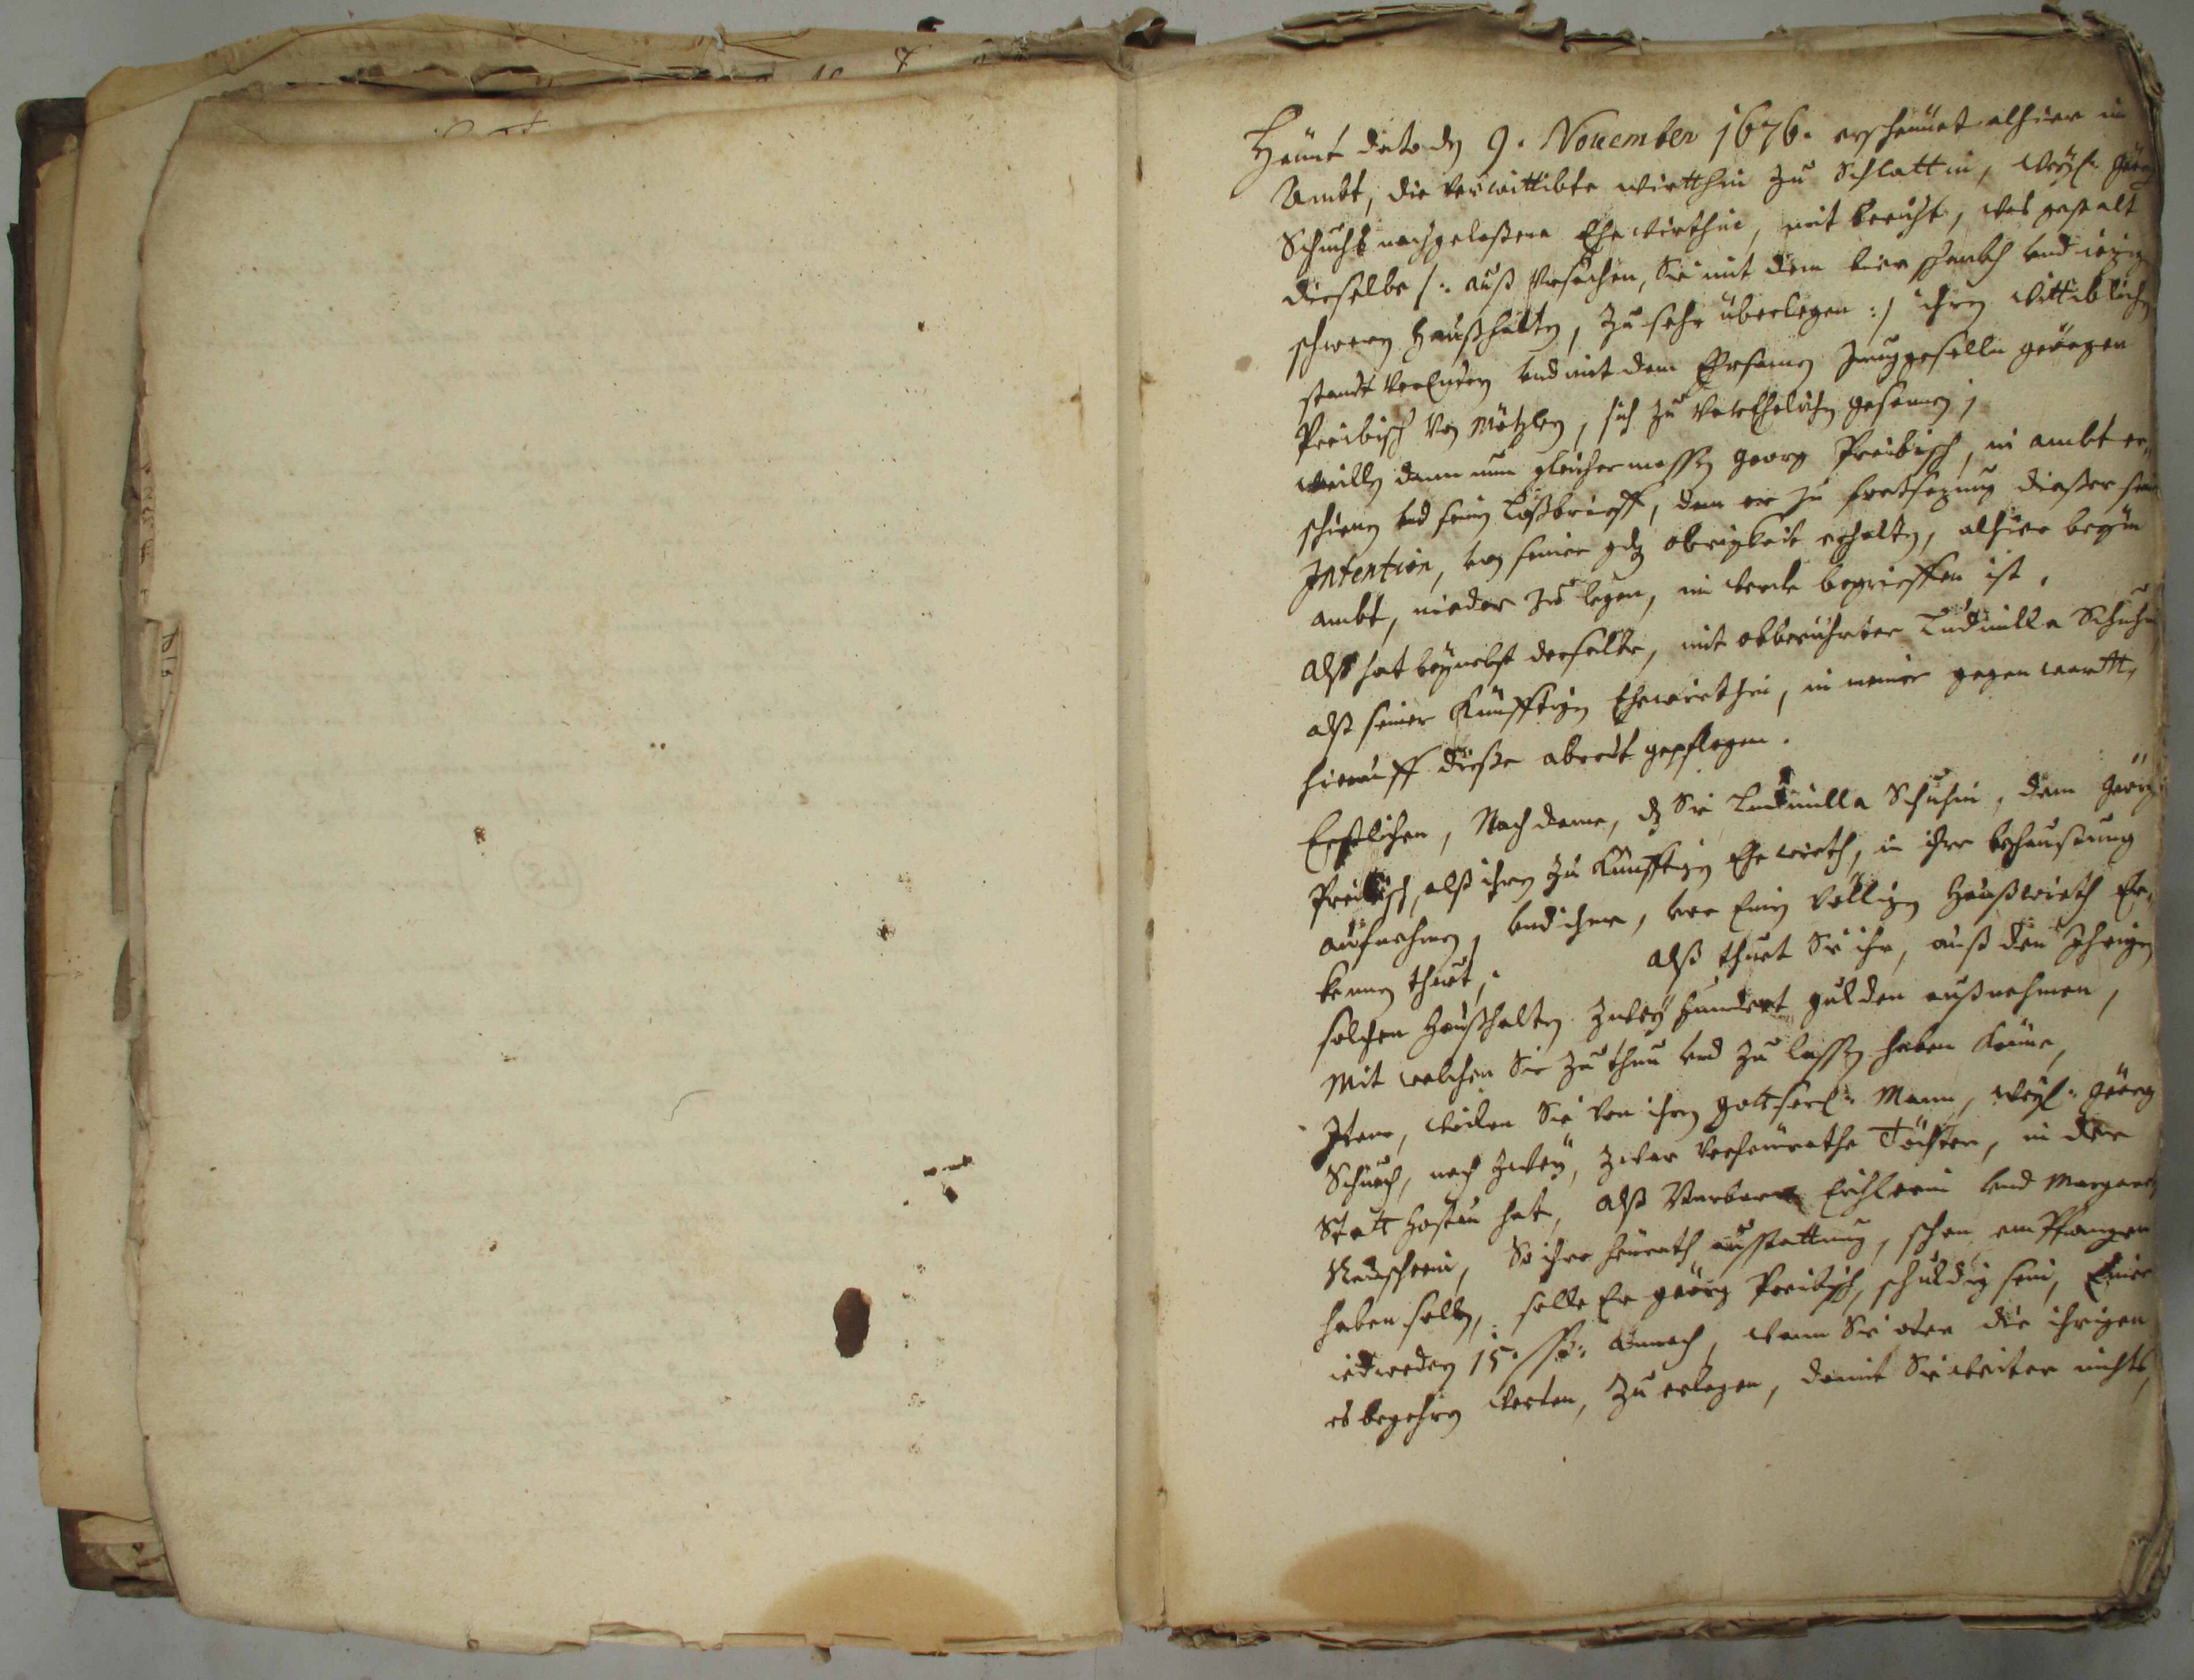 Heünt dato dn 9. November 1676. erscheünet alhier in
Ambt, die verwittibte wirtthin zu Schlattin, weyl: Görg
Schuchs nachgelaßene Ehewirthin, mit bericht, was gestalt
dieselbe /: auß Ursachen, Sie mit dem bier schankh und iezig
schweren Haußhalten, zu sehr überlegen :/ ihren Wittiblichen
standt verEnden und mit dem Ehrsamen Junggeselln geörgen
Preibisch von Mötzlen, sich zu vereheliche gesonnen,
weilln dann nun gleichermassen georg Preibisch, in ambt er„
schienen und seinen Loßbrieff, den er zu fortsezung dießer sein
Intention, von seiner gdn obrigkeit erhalten, alhier beyn
ambt, nieder zu legen, im werck begrieffen ist,
Alß hat beynebst derselbe, mit obberührter Ludmilla Schuhin
alß seiner künfftigen Ehewirthin, in meiner gegenwartt,
hierauff dieße abredt gepflogen.
Erstlichen, Nach deme, dz Sie Ludmilla Schuhin, dem Geörg
Preibisch, alß ihren zu künfftigen Ehewirth, in ihre behaußung
aufnehmen, und ihme, vor Einen völligen Haußwirth Er„
kennen thuet, alß thuet Sie ihr, auß den Ihrigen
solchen Haußhalten zwey hundert gulden außnehmen,
Mit welchen Sie zu thun und zu lassen haben könne,
Item, weilen Sie von ihren gottseel: Mann, weyl: Geörg
Schuch, noch zwey, zwar verheürathe Töchter, in der
Statt Hostau hat, alß Barbara und Margareta
So ihre heürath außstattung, schon empfangen
haben solln, solle Er geörg Preibisch, schuldig sein, Einer
iedweden 15. ß: annoch, wann Sie oder die ihrigen
es begehren werden, zu erlegen, damit Sie weiter nichts